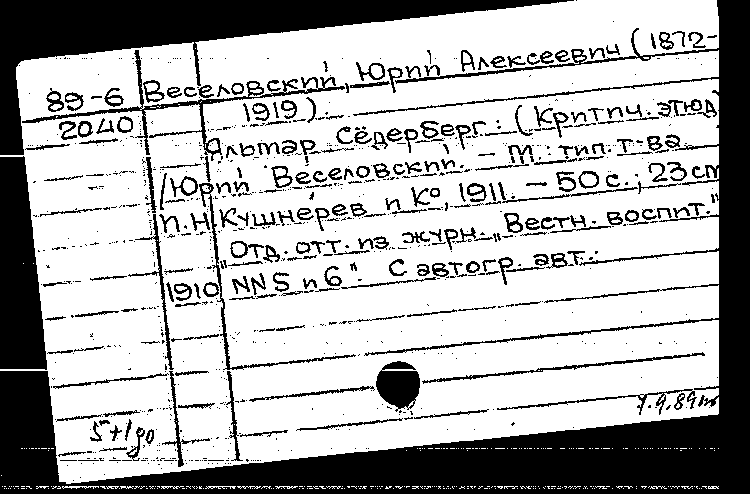 89-6 Веселовский, Юрий Алексеевич (1872-
2040 1919).
Яльмар Сёдерберг: (Критич. этюд)
/Юрий Веселовский. - М.: тип. т-ва
И.Н. Кушнерев и К°, 1911. - 50 с.; 23 см
"Отд. отт. из журн. "Вестн. воспит."
1910 NN 5 и 6". С автогр. авт.:
5+1